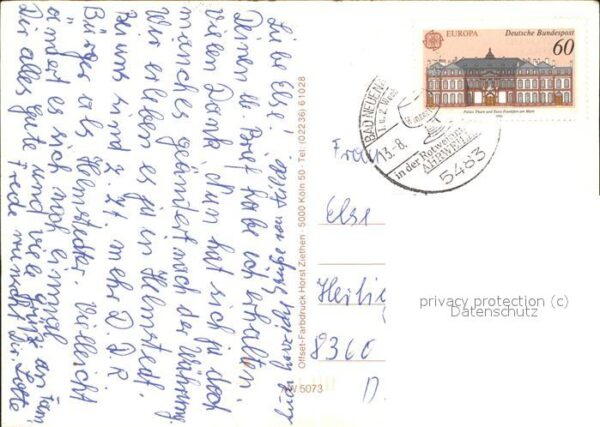 Liebe Else!
Deinen lb. Brief habe ich erhalten
vielen Dank, Nun hat sich ja doch
manches geändert nach der Währung.
Wir erleben es ja in Helmstedt.
zu uns sind z. Zt mehr D.D.R
Bürger als Helmstedter. Vielleicht
ändert es sich noch einmal
Dir alles gute und viele Grüße an Fam
Frede wünscht Dir Lotte
Offset-Farbdruck Horst Ziethen · 5000 Köln 50 · Tel: (02236) 61028
AW 5073
EUROPA
Deutsche Bundespost
60
Palais Thurn und Taxis Frankfurt am Main
1990
BAD NEUENAHR
13.-8.
in der Rotweinst
AHRWEILER
5483
Else
Heilig
8360
D
privacy protection (c)
Datenschutz